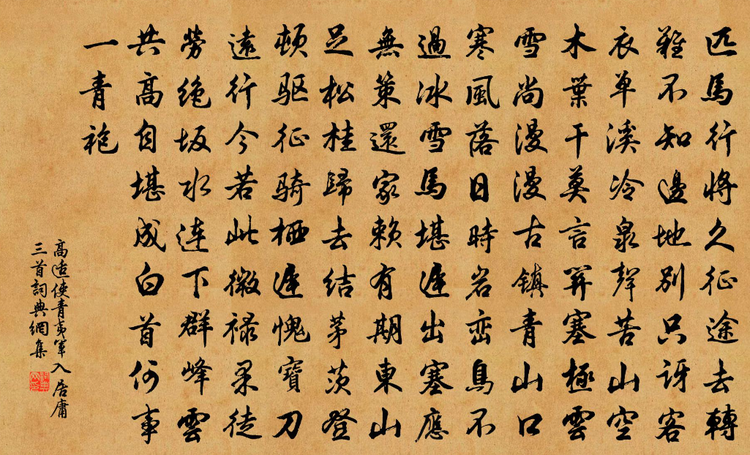 匹馬行將久征途去轉
難不知邊地別只訝客
衣單溪冷泉聲苦山空
木葉干莫言關塞極雲
雪尚漫漫古鎮青山口
寒風落日時岩巒鳥不
過冰雪馬堪遲出塞應
無策還家賴有期東山
足松桂歸去結茅茨登
頓驅征騎栖遲愧寶刀
遠行今若此微祿果徒
勞絕坂水連下群峰雲
共高自堪成白首何事
一青袍
高适使青夷軍入居庸
三首詞典網集